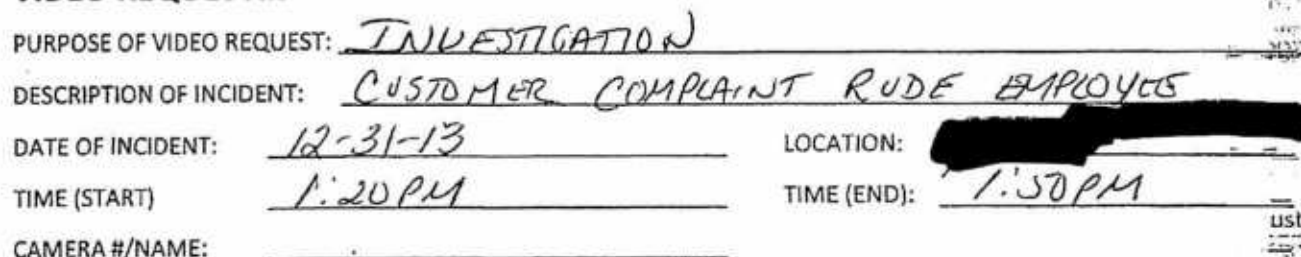 PURPOSE OF VIDEO REQUEST: INVESTIGATION
DESCRIPTION OF INCIDENT: CUSTOMER COMPLAINT RUDE EMPLOYEE
DATE OF INCIDENT: 12-31-13 LOCATION:
TIME (START) 1:20 PM TIME (END): 1:50 PM
ust
CAMERA #/NAME: